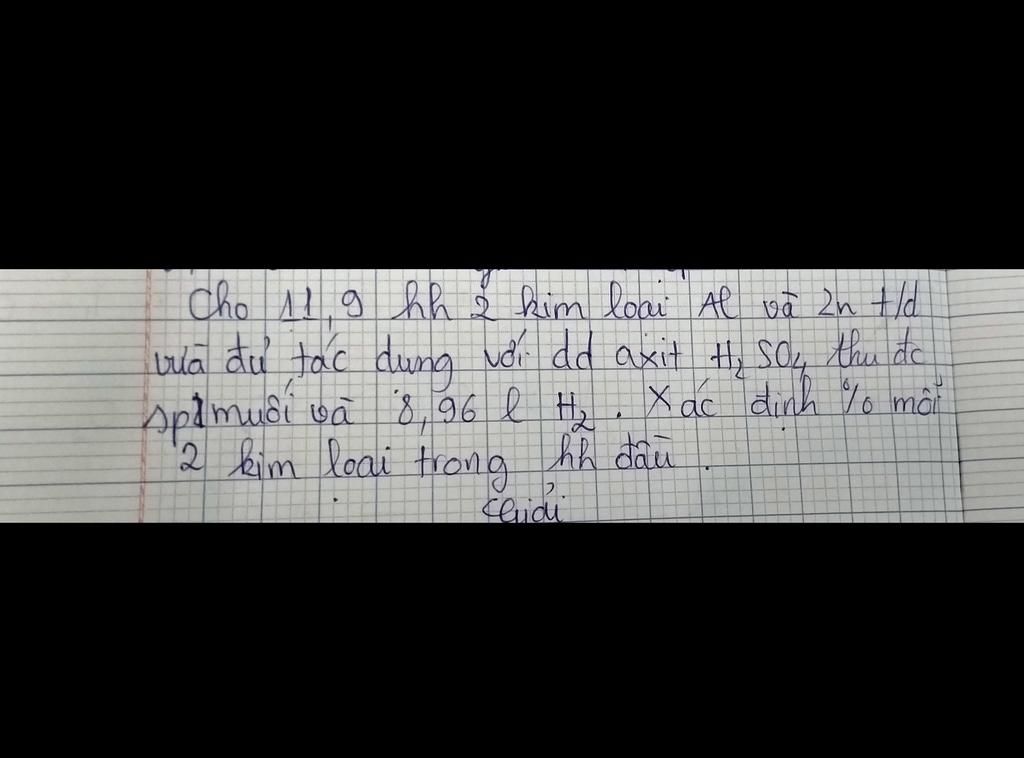 Cho 11,9 hh 2 kim loai Al và Zn t/d
vừa đủ tác dụng với dd axit H₂SO₄ thu đc
sp1 muối và 8,96 l H₂. Xác định % mỗi
2 kim loại trong hh đầu.
Giải